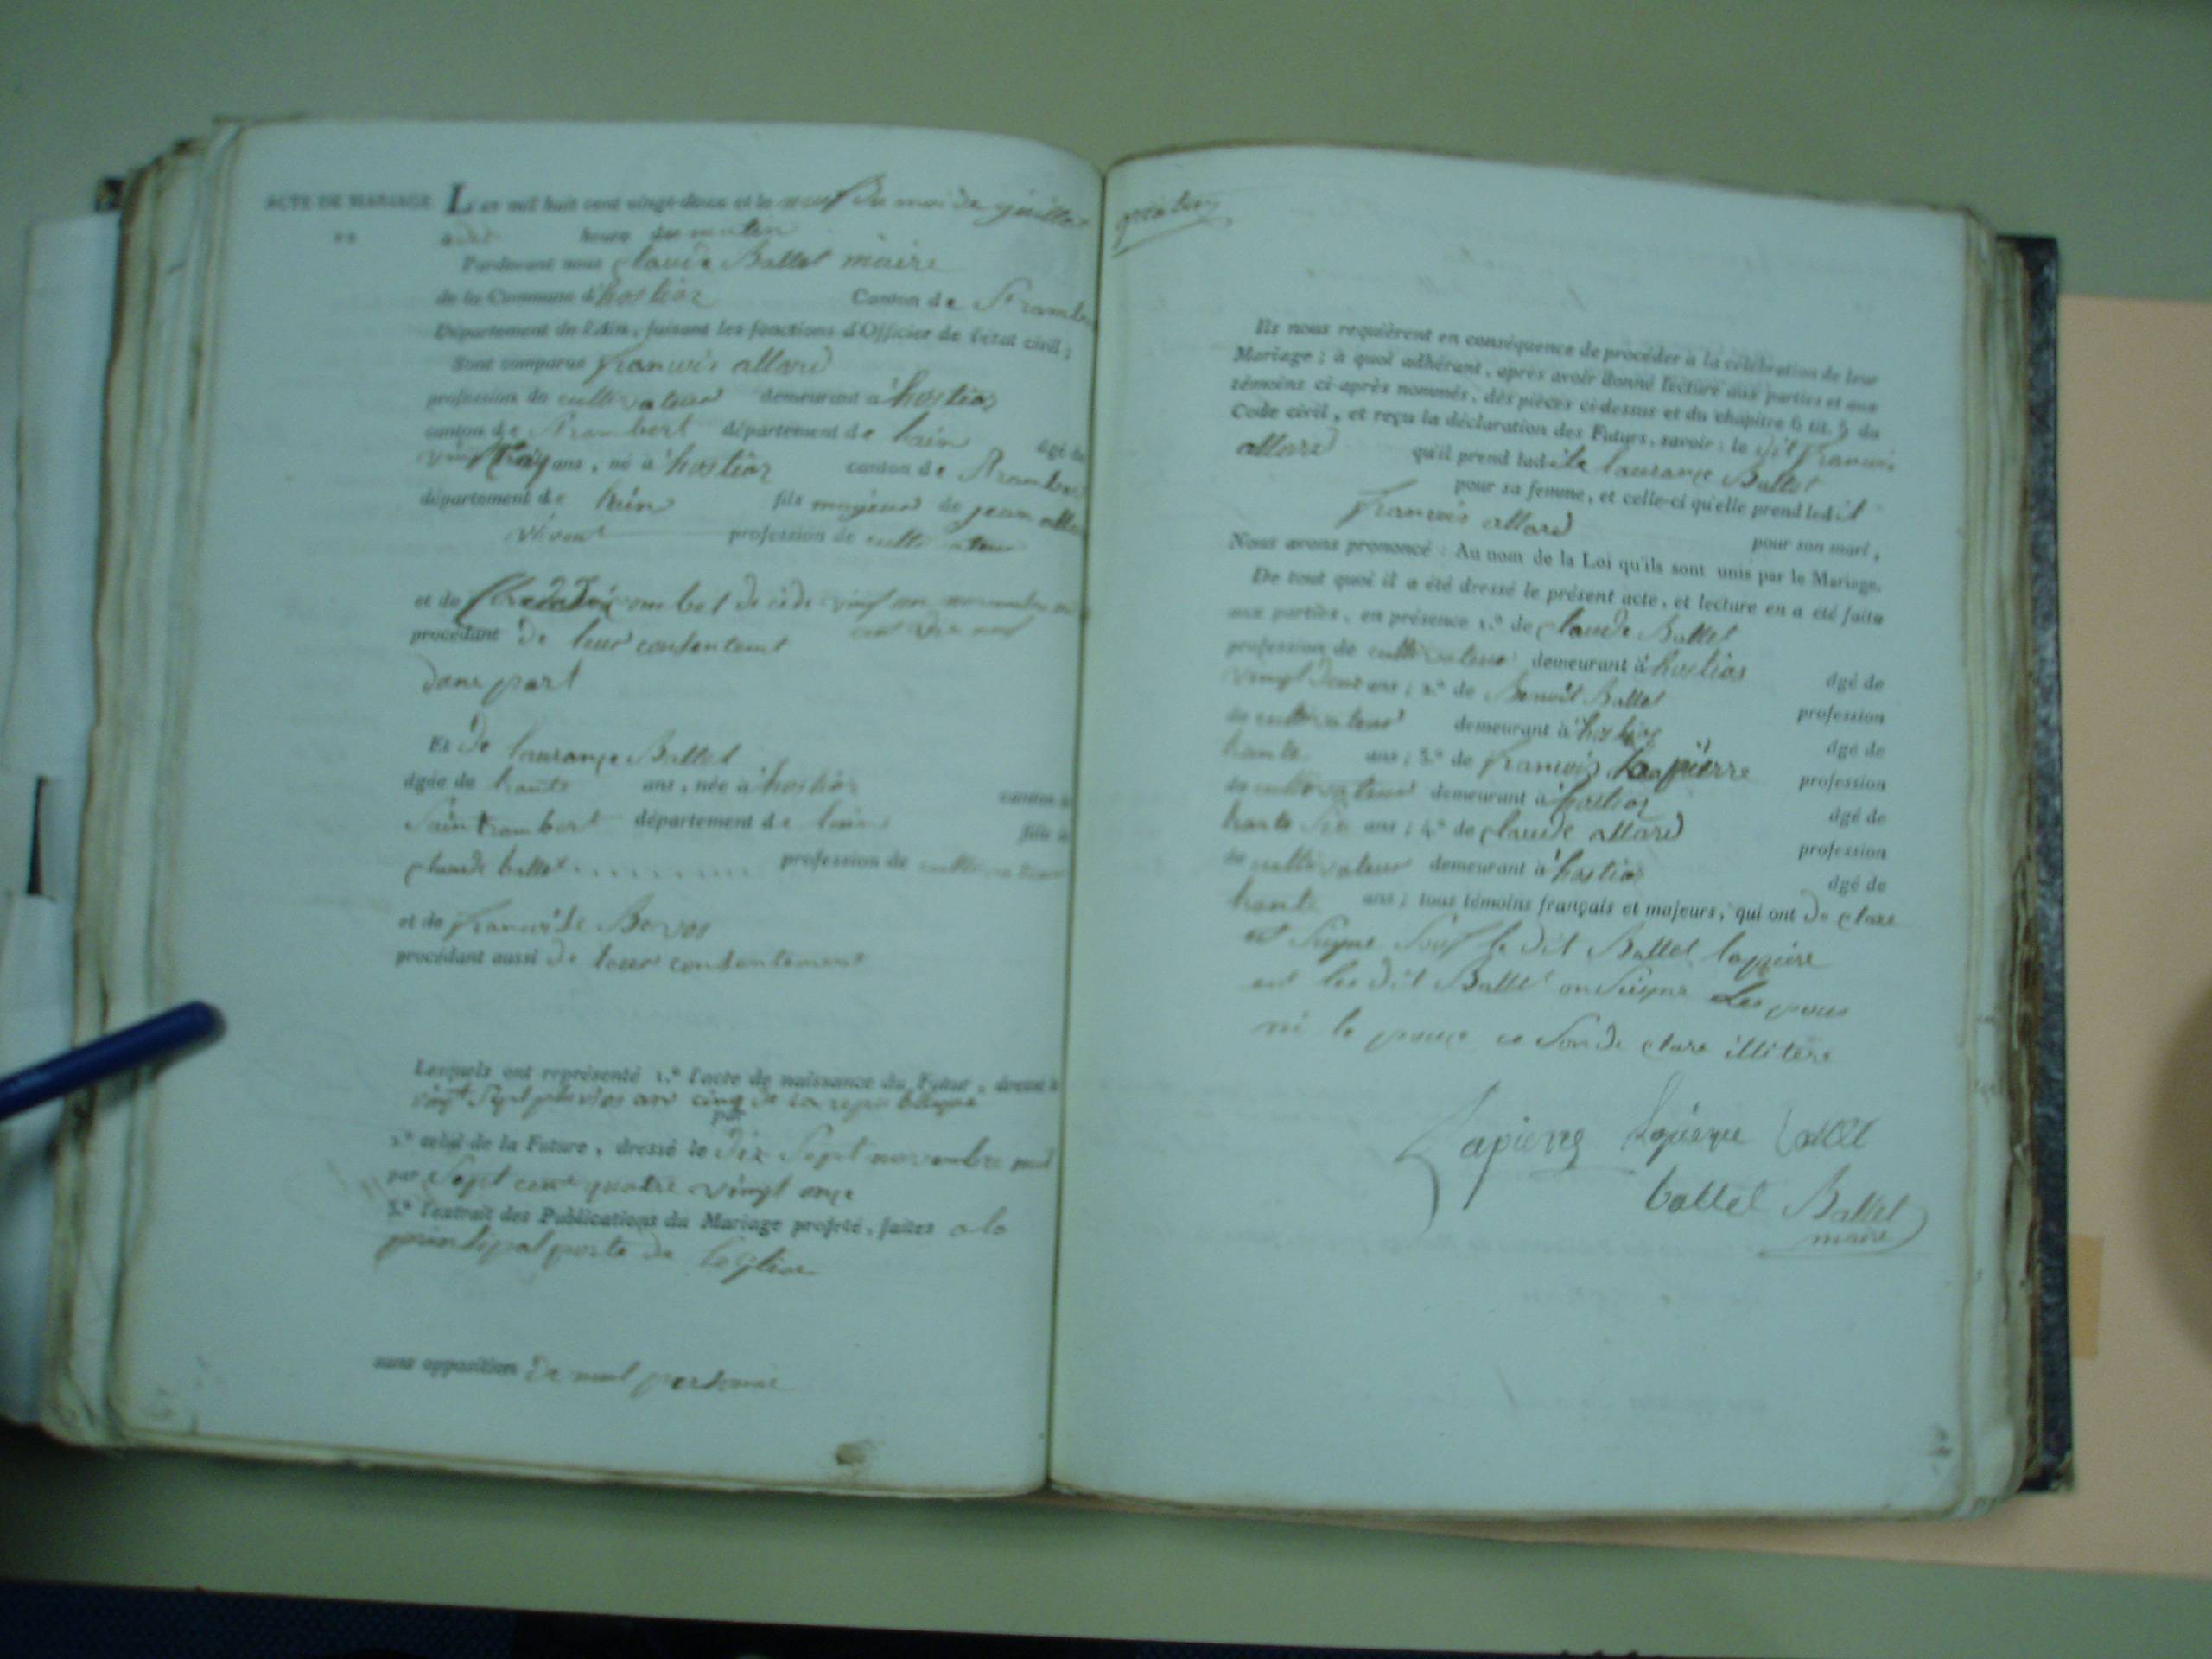 ACTE DE MARIAGE L'an mil huit cent vingt-deux et le neuf du moi de juillet
heure du matin
Pardevant nous claude Ballet maire
de la Commune d'hostiaz Canton de St rambert
Département de l'Ain, faisant les fonctions d'Officier de l'état civil;
Sont comparus francois allard
profession de cultivateur demeurant à hostiaz
canton de St rambert département de lain âgé de
vingt cinq ans, né à hostiaz canton de St rambert
département de lain fils majeur de jean allard
vivent profession de cultivateur
et de
procédant de leur consentement
dune part
Et de laurançe Ballet
âgée de trante ans, née à hostiaz canton de
Saint rambert département de lain fille de
claude ballet profession de cultivateur
et de francoise
procédant aussi de leur consentement
Lesquels ont représenté 1.º l'acte de naissance du Futur, dressé le
vingt Sept pluvios an cinq de la
par
2.º celui de la Future, dressé le dix Sept novembre mil
par Sept cent quatre vingt onçe
3.º l'extrait des Publications du Mariage projeté, faites a la
prinsipal porte de leglise
sans opposition de nul personne
Ils nous requièrent en conséquence de procéder à la célébration de leur
Mariage; à quoi adhérant, après avoir donné lecture aux parties et aux
témoins ci-après nommés, des pièces ci-dessus et du chapitre 6 tit. 5 du
Code civil, et reçu la déclaration des Futurs, savoir: le dit francois
allard qu'il prend ladite laurançe Ballet
pour sa femme, et celle-ci qu'elle prend ledit
francois allard pour son mari,
Nous avons prononcé: Au nom de la Loi qu'ils sont unis par le Mariage.
De tout quoi il a été dressé le présent acte, et lecture en a été faite
aux parties, en présence 1.º de claude Ballet
profession de cultivateur demeurant à hostias âgé de
vingt deux ans; 2.º de Benoit Ballet profession
de cultivateur demeurant à hostiaz âgé de
trante ans; 3.º de francois Lapierre profession
de cultivateur demeurant à hostiaz âgé de
trante Six ans; 4.º de claude allard profession
de cultivateur demeurant à hostiaz âgé de
trante ans; tous témoins français et majeurs, qui ont de clare
le dit Ballet lapiere
les dit Ballet on Signe Les pous
ni le pouçe se Son de clare illitere
Lapierre
ballet Ballet
maire